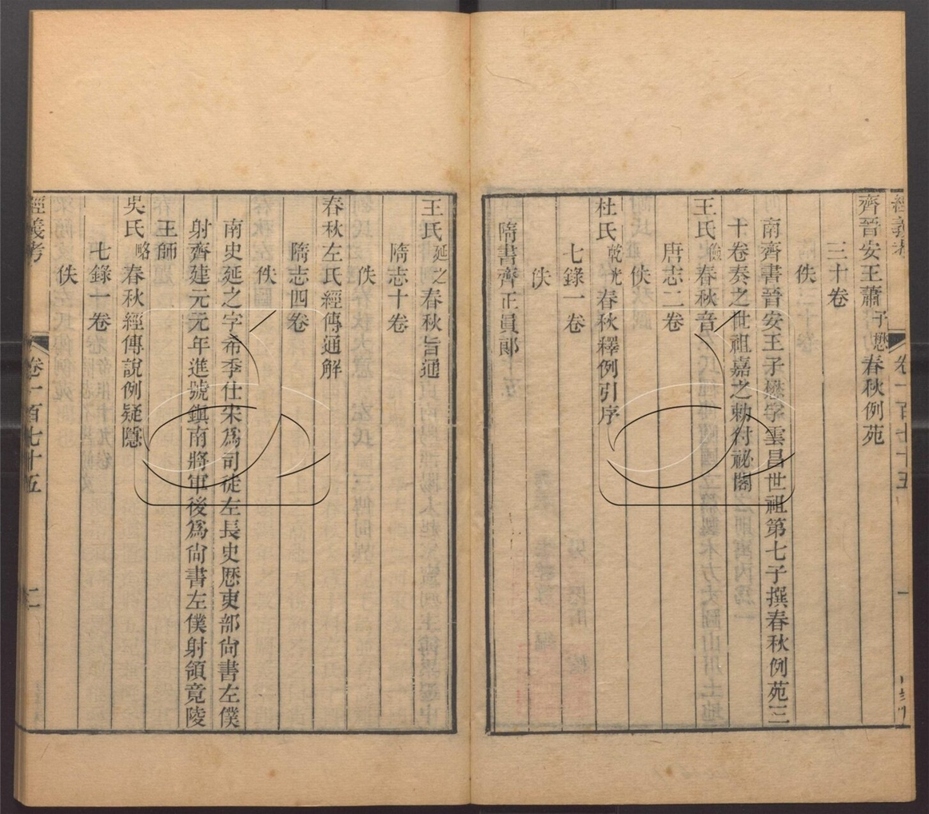 齊晉安王蕭子懋春秋例苑
三十卷
佚
南齊書晉安王子懋字雲昌世祖第七子撰春秋例苑三
十卷奏之世祖嘉之勅付祕閣
王氏儉春秋音
唐志二卷
佚
杜氏乾光春秋釋例引序
七錄一卷
佚
隋書齊正員郞
王氏延之春秋旨通
隋志十卷
佚
春秋左氏經傳通解
隋志四卷
佚
南史延之字希季仕宋爲司徒左長史歷吏部尙書左僕
射齊建元元年進號鎮南將軍後爲尙書左僕射領竟陵
王師
吳氏略春秋經傳說例疑隱
七錄一卷
佚
經義考 卷一百七十五 二